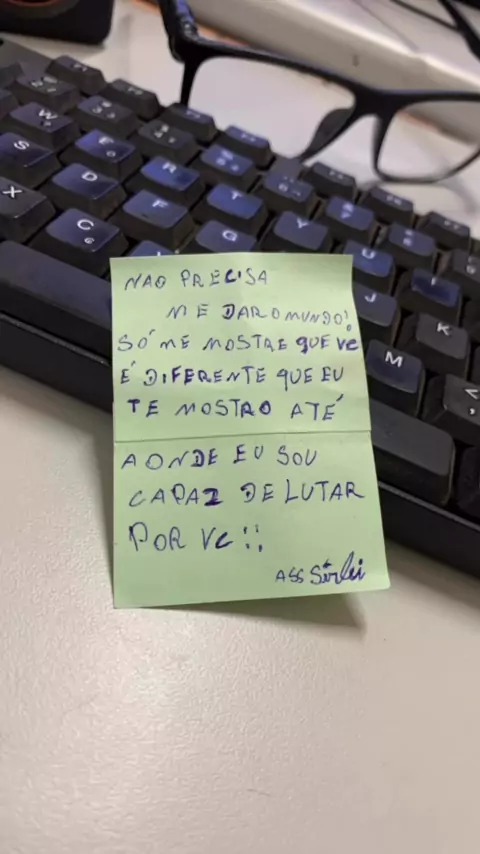 NAO PRECISA
ME DAR O MUNDO!
SÓ ME MOSTRE QUE VC
É DIFERENTE QUE EU
TE MOSTRO ATÉ
AONDE EU SOU
CAPAZ DE LUTAR
POR VC!!
ASS Sirlei